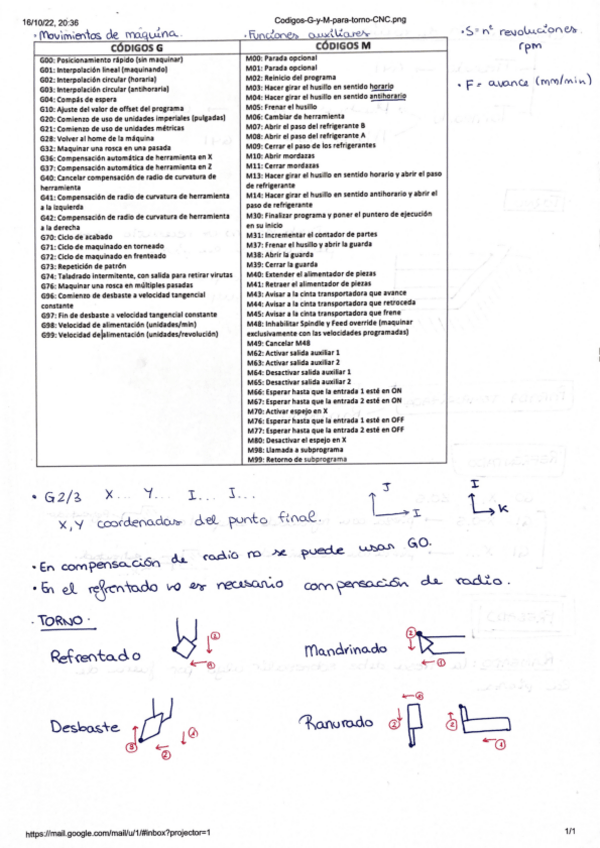 16/10/22, 20:36
Codigos-G-y-M-para-torno-CNC.png
· Movimientos de máquina.
· Funciones auxiliares
· S = nº revoluciones.
rpm
· F = avance (mm/min)
CÓDIGOS G
G00: Posicionamiento rápido (sin maquinar)
G01: Interpolación lineal (maquinando)
G02: Interpolación circular (horaria)
G03: Interpolación circular (antihoraria)
G04: Compás de espera
G10: Ajuste del valor de offset del programa
G20: Comienzo de uso de unidades imperiales (pulgadas)
G21: Comienzo de uso de unidades métricas
G28: Volver al home de la máquina
G32: Maquinar una rosca en una pasada
G36: Compensación automática de herramienta en X
G37: Compensación automática de herramienta en Z
G40: Cancelar compensación de radio de curvatura de
herramienta
G41: Compensación de radio de curvatura de herramienta
a la izquierda
G42: Compensación de radio de curvatura de herramienta
a la derecha
G70: Ciclo de acabado
G71: Ciclo de maquinado en torneado
G72: Ciclo de maquinado en frenteado
G73: Repetición de patrón
G74: Taladrado intermitente, con salida para retirar virutas
G76: Maquinar una rosca en múltiples pasadas
G96: Comienzo de desbaste a velocidad tangencial
constante
G97: Fin de desbaste a velocidad tangencial constante
G98: Velocidad de alimentación (unidades/min)
G99: Velocidad de alimentación (unidades/revolución)
CÓDIGOS M
M00: Parada opcional
M01: Parada opcional
M02: Reinicio del programa
M03: Hacer girar el husillo en sentido horario
M04: Hacer girar el husillo en sentido antihorario
M05: Frenar el husillo
M06: Cambiar de herramienta
M07: Abrir el paso del refrigerante B
M08: Abrir el paso del refrigerante A
M09: Cerrar el paso de los refrigerantes
M10: Abrir mordazas
M11: Cerrar mordazas
M13: Hacer girar el husillo en sentido horario y abrir el paso
de refrigerante
M14: Hacer girar el husillo en sentido antihorario y abrir el
paso de refrigerante
M30: Finalizar programa y poner el puntero de ejecución
en su inicio
M31: Incrementar el contador de partes
M37: Frenar el husillo y abrir la guarda
M38: Abrir la guarda
M39: Cerrar la guarda
M40: Extender el alimentador de piezas
M41: Retraer el alimentador de piezas
M43: Avisar a la cinta transportadora que avance
M44: Avisar a la cinta transportadora que retroceda
M45: Avisar a la cinta transportadora que frene
M48: Inhabilitar Spindle y Feed override (maquinar
exclusivamente con las velocidades programadas)
M49: Cancelar M48
M62: Activar salida auxiliar 1
M63: Activar salida auxiliar 2
M64: Desactivar salida auxiliar 1
M65: Desactivar salida auxiliar 2
M66: Esperar hasta que la entrada 1 esté en ON
M67: Esperar hasta que la entrada 2 esté en ON
M70: Activar espejo en X
M76: Esperar hasta que la entrada 1 esté en OFF
M77: Esperar hasta que la entrada 2 esté en OFF
M80: Desactivar el espejo en X
M98: Llamada a subprograma
M99: Retorno de subprograma
· G2/3 X... Y... I... J...
J
I
I
K
X, Y coordenadas del punto final.
· En compensación de radio no se puede usar G0.
· En el refrentado no es necesario compensación de radio.
· TORNO ·
Refrentado
Mandrinado
Desbaste
Ranurado
https://mail.google.com/mail/u/1/#inbox?projector=1
1/1